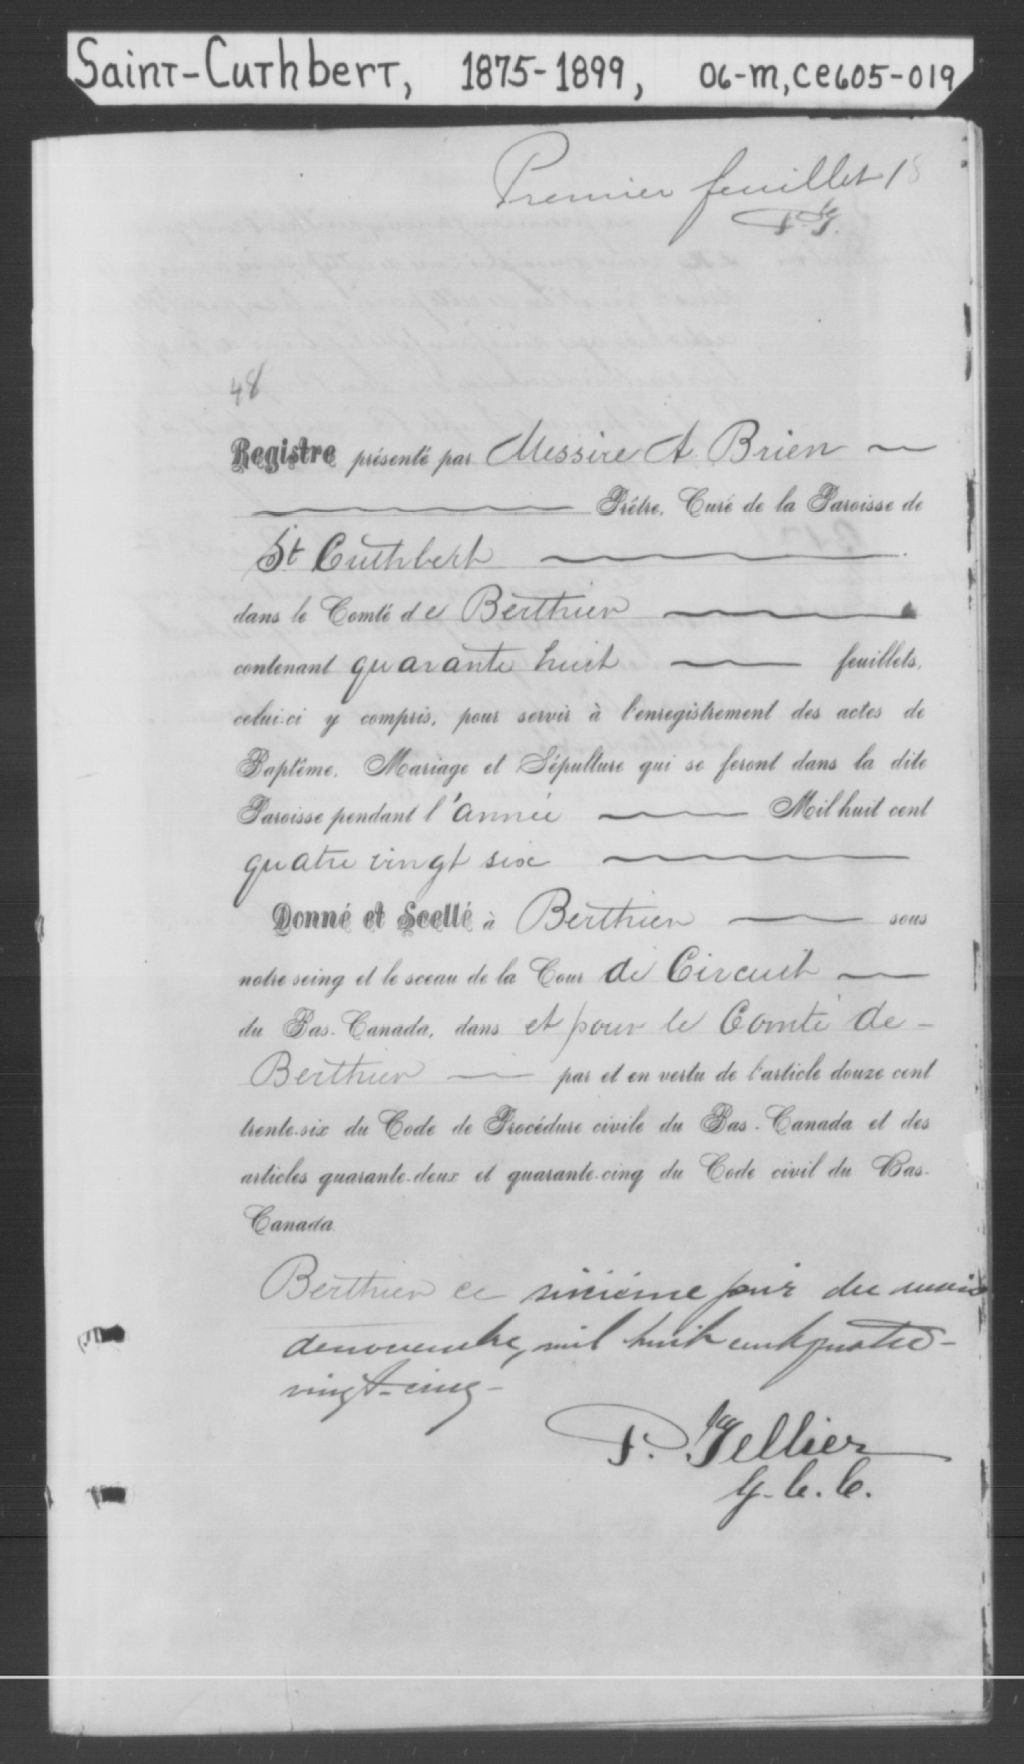 Saint-Cuthbert, 1875-1899, 06-M, CE605-019
Premier feuillet
P. T.
48
Registre présenté par Messire A. Brien
Prêtre, Curé de la Paroisse de
St Cuthbert
dans le Comté de Berthier
contenant quarante huit feuillets,
celui-ci y compris, pour servir à l'enregistrement des actes de
Baptême, Mariage et Sépulture qui se feront dans la dite
Paroisse pendant l'année Mil huit cent
quatre vingt six
Donné et Scellé à Berthier sous
notre seing et le sceau de la Cour de Circuit
du Bas-Canada, dans et pour le Comté de -
Berthier par et en vertu de l'article douze cent
trente-six du Code de Procédure civile du Bas-Canada et des
articles quarante-deux et quarante-cinq du Code civil du Bas-
Canada
Berthier ce sixième jour du mois
de novembre, mil huit cent quatre-
vingt-cinq-
P. Tellier
G. C. C.